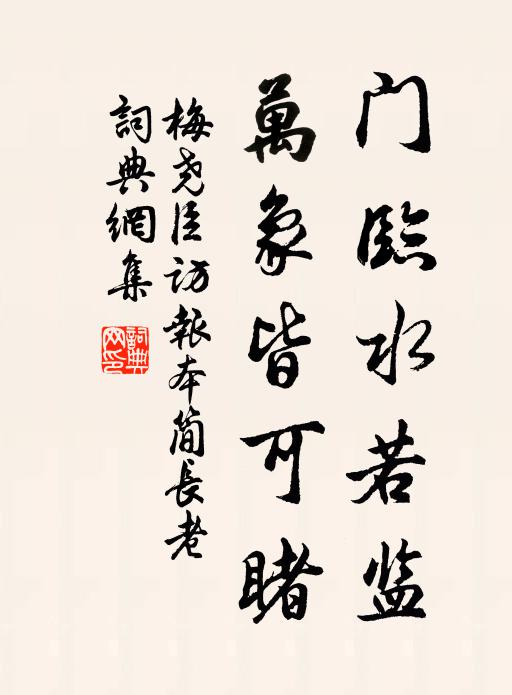 门臨水若监
萬象皆可睹
梅尧臣访報本简長老
詞典網集
詞典網印